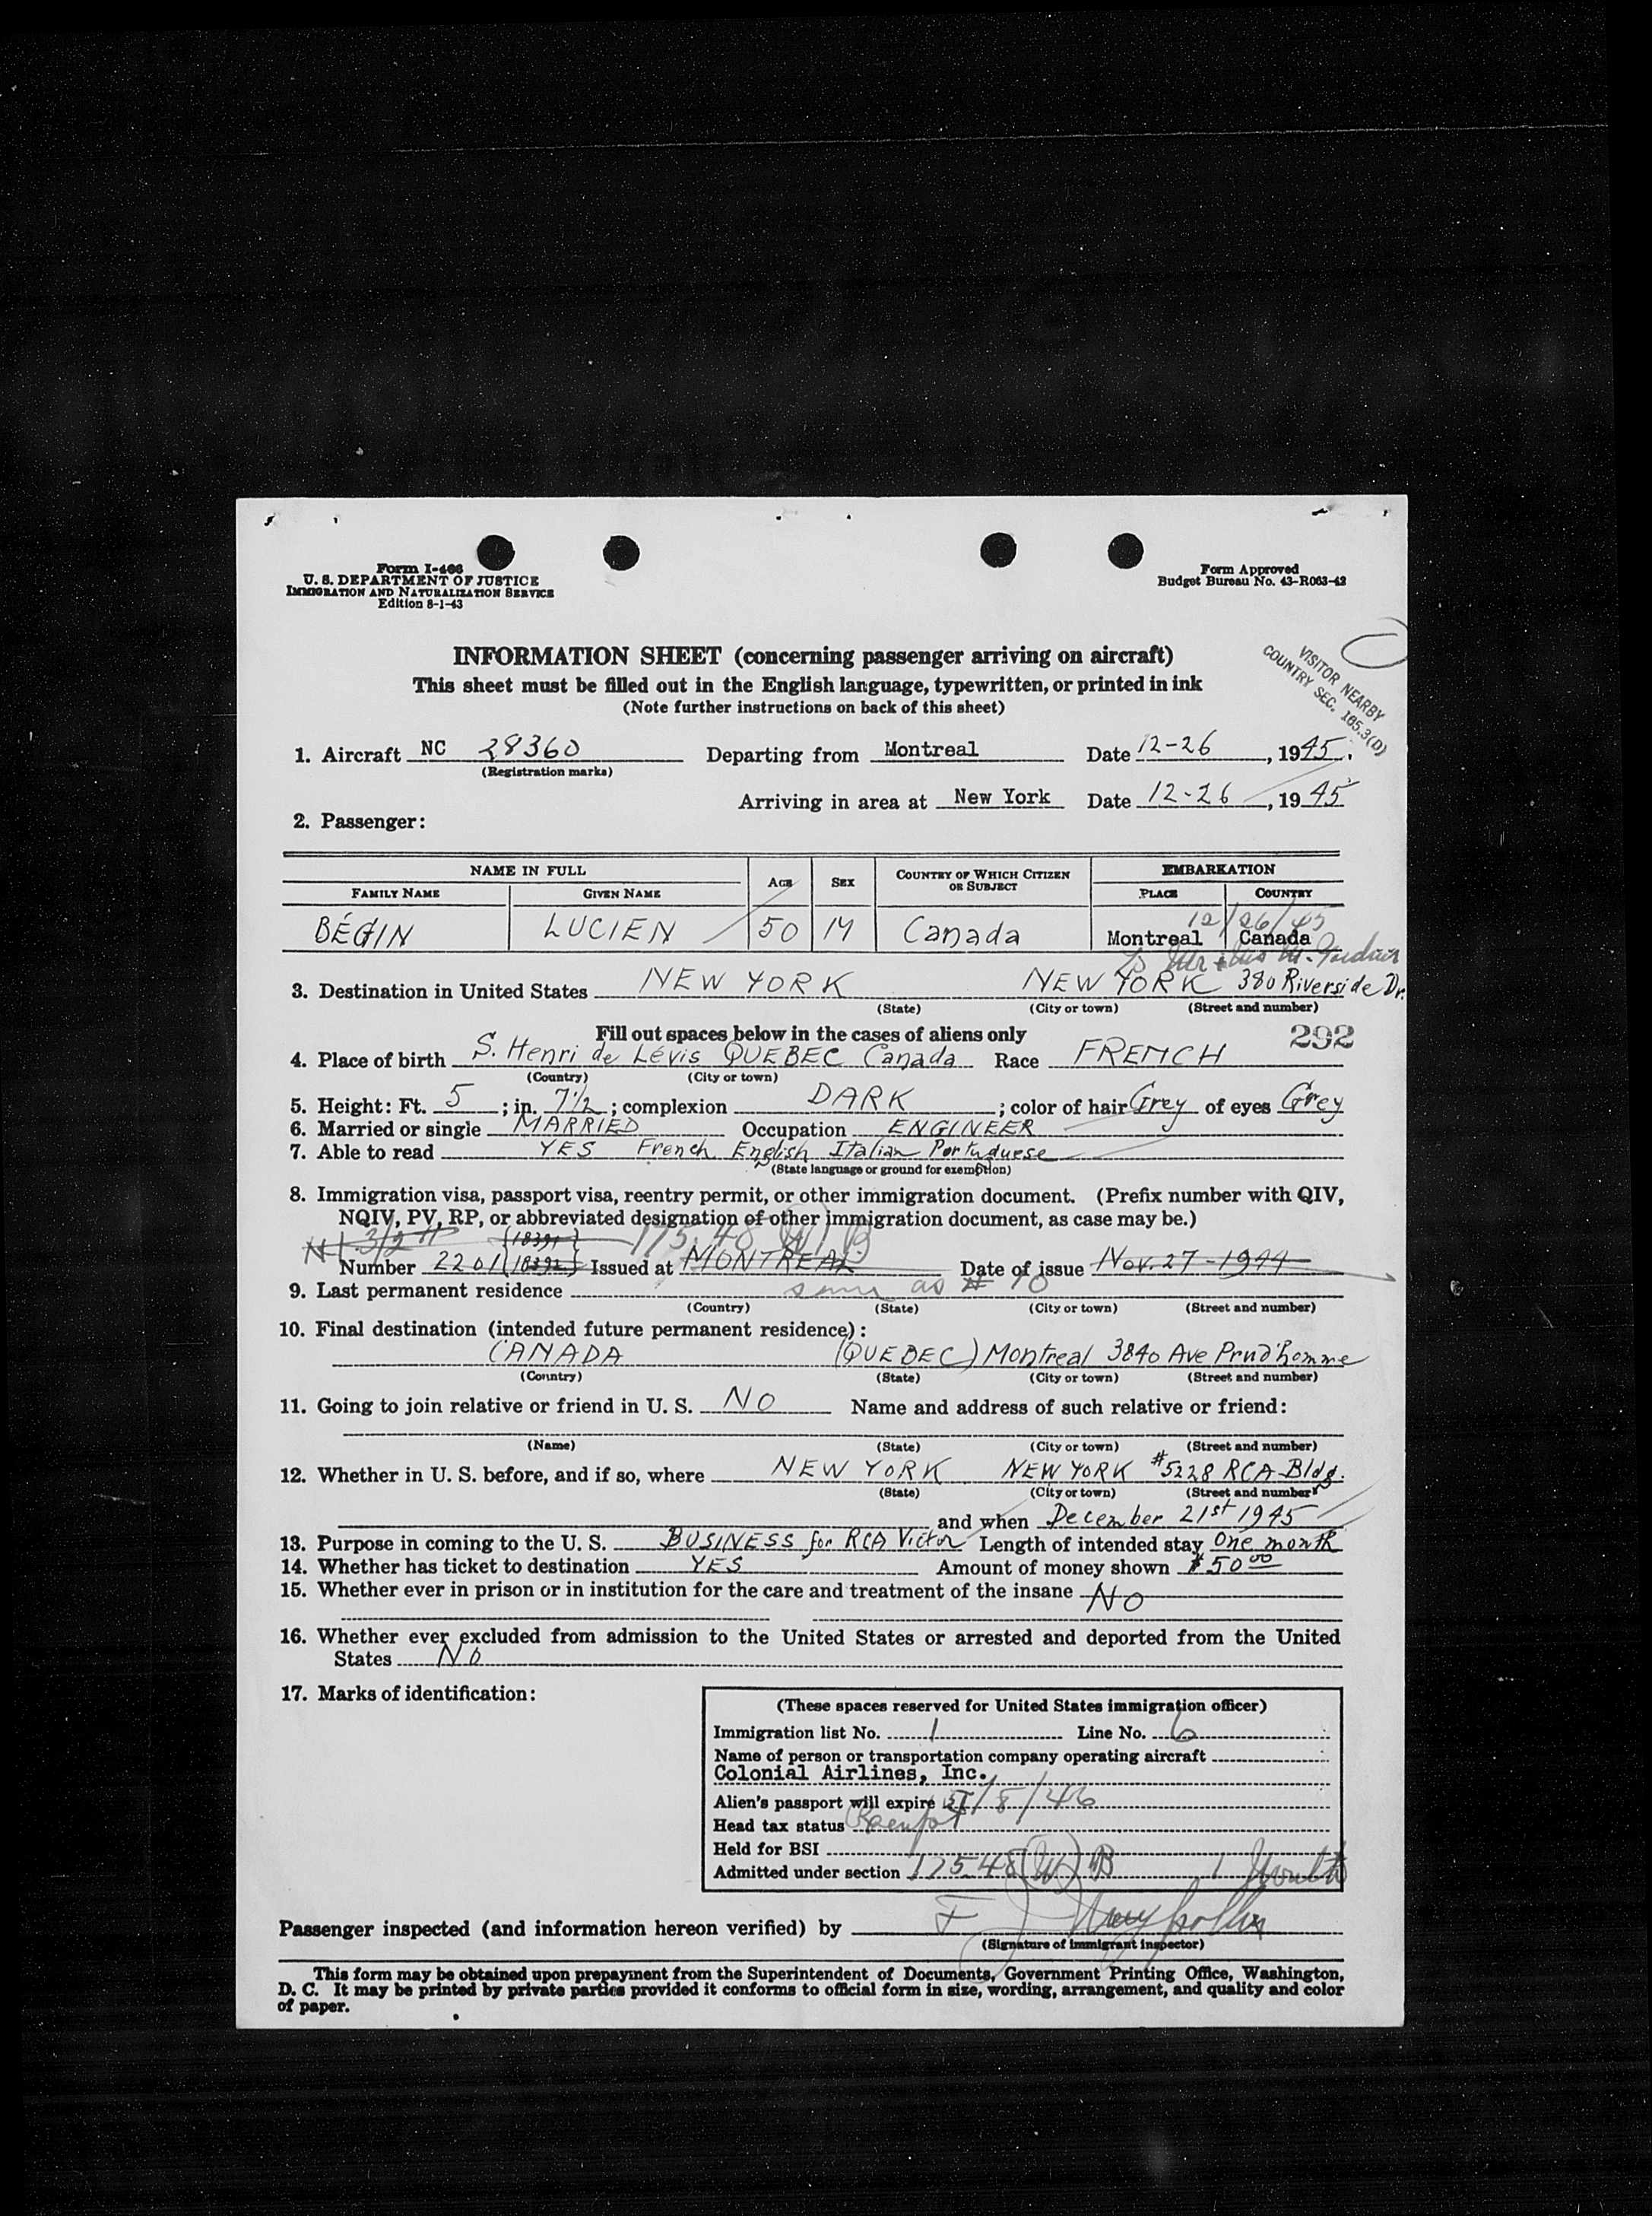 Form I-466
U. S. DEPARTMENT OF JUSTICE
IMMIGRATION AND NATURALIZATION SERVICE
Edition 8-1-43
Form Approved
Budget Bureau No. 43-R063-42
INFORMATION SHEET (concerning passenger arriving on aircraft)
This sheet must be filled out in the English language, typewritten, or printed in ink
(Note further instructions on back of this sheet)
VISITOR NEARBY
COUNTRY SEC. 165.3(D)
1. Aircraft NC 28360 Departing from Montreal Date 12-26, 1945.
(Registration marks)
Arriving in area at New York Date 12-26, 1945
2. Passenger:
NAME IN FULL AGE SEX COUNTRY OF WHICH CITIZEN OR SUBJECT EMBARKATION
FAMILY NAME GIVEN NAME PLACE COUNTRY
12/26/45
BÉGIN LUCIEN 50 M Canada Montreal Canada
3. Destination in United States NEW YORK NEW YORK 380 Riverside Dr.
(State) (City or town) (Street and number)
Fill out spaces below in the cases of aliens only 292
4. Place of birth S. Henri de Lévis QUEBEC Canada Race FRENCH
(Country) (City or town)
5. Height: Ft. 5; in. 7 1/2; complexion DARK; color of hair Grey of eyes Grey
6. Married or single MARRIED Occupation ENGINEER
7. Able to read YES French English Italian Portuguese
(State language or ground for exemption)
8. Immigration visa, passport visa, reentry permit, or other immigration document. (Prefix number with QIV,
NQIV, PV, RP, or abbreviated designation of other immigration document, as case may be.)
175.48 (W) B
Number 2201 (18392) Issued at MONTREAL Date of issue Nov. 27-1944
9. Last permanent residence same as # 10
(Country) (State) (City or town) (Street and number)
10. Final destination (intended future permanent residence):
CANADA (QUEBEC) Montreal 3840 Ave Prud'homme
(Country) (State) (City or town) (Street and number)
11. Going to join relative or friend in U. S. NO Name and address of such relative or friend:
(Name) (State) (City or town) (Street and number)
12. Whether in U. S. before, and if so, where NEW YORK NEW YORK #5228 RCA Bldg.
(State) (City or town) (Street and number)
and when December 21st 1945
13. Purpose in coming to the U. S. BUSINESS for RCA Victor Length of intended stay One month
14. Whether has ticket to destination YES Amount of money shown $50 00
15. Whether ever in prison or in institution for the care and treatment of the insane NO
16. Whether ever excluded from admission to the United States or arrested and deported from the United
States NO
17. Marks of identification:
(These spaces reserved for United States immigration officer)
Immigration list No. 1 Line No. 6
Name of person or transportation company operating aircraft
Colonial Airlines, Inc.
Alien's passport will expire /8/46
Head tax status Exempt
Held for BSI
Admitted under section 175.48 (W) B 1 Month
Passenger inspected (and information hereon verified) by
(Signature of immigrant inspector)
This form may be obtained upon prepayment from the Superintendent of Documents, Government Printing Office, Washington,
D. C. It may be printed by private parties provided it conforms to official form in size, wording, arrangement, and quality and color
of paper.